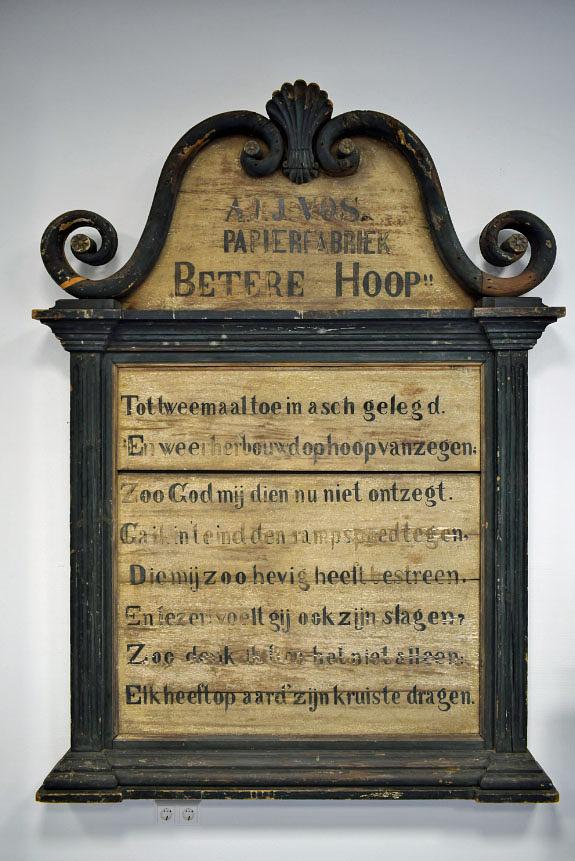 A.J.J. VOS.
PAPIERFABRIEK
„BETERE HOOP"
Tot tweemaal toe in asch gelegd.
En weer herbouwd op hoop van zegen;
Zoo God mij dien nu niet ontzegt.
Ga ik in 't eind den rampspoed tegen,
Die mij zoo hevig heeft bestreen.
En lezer voelt gij ook zijn slagen,
Zoo denk ik kon het niet alleen;
Elk heeft op aard' zijn kruis te dragen.